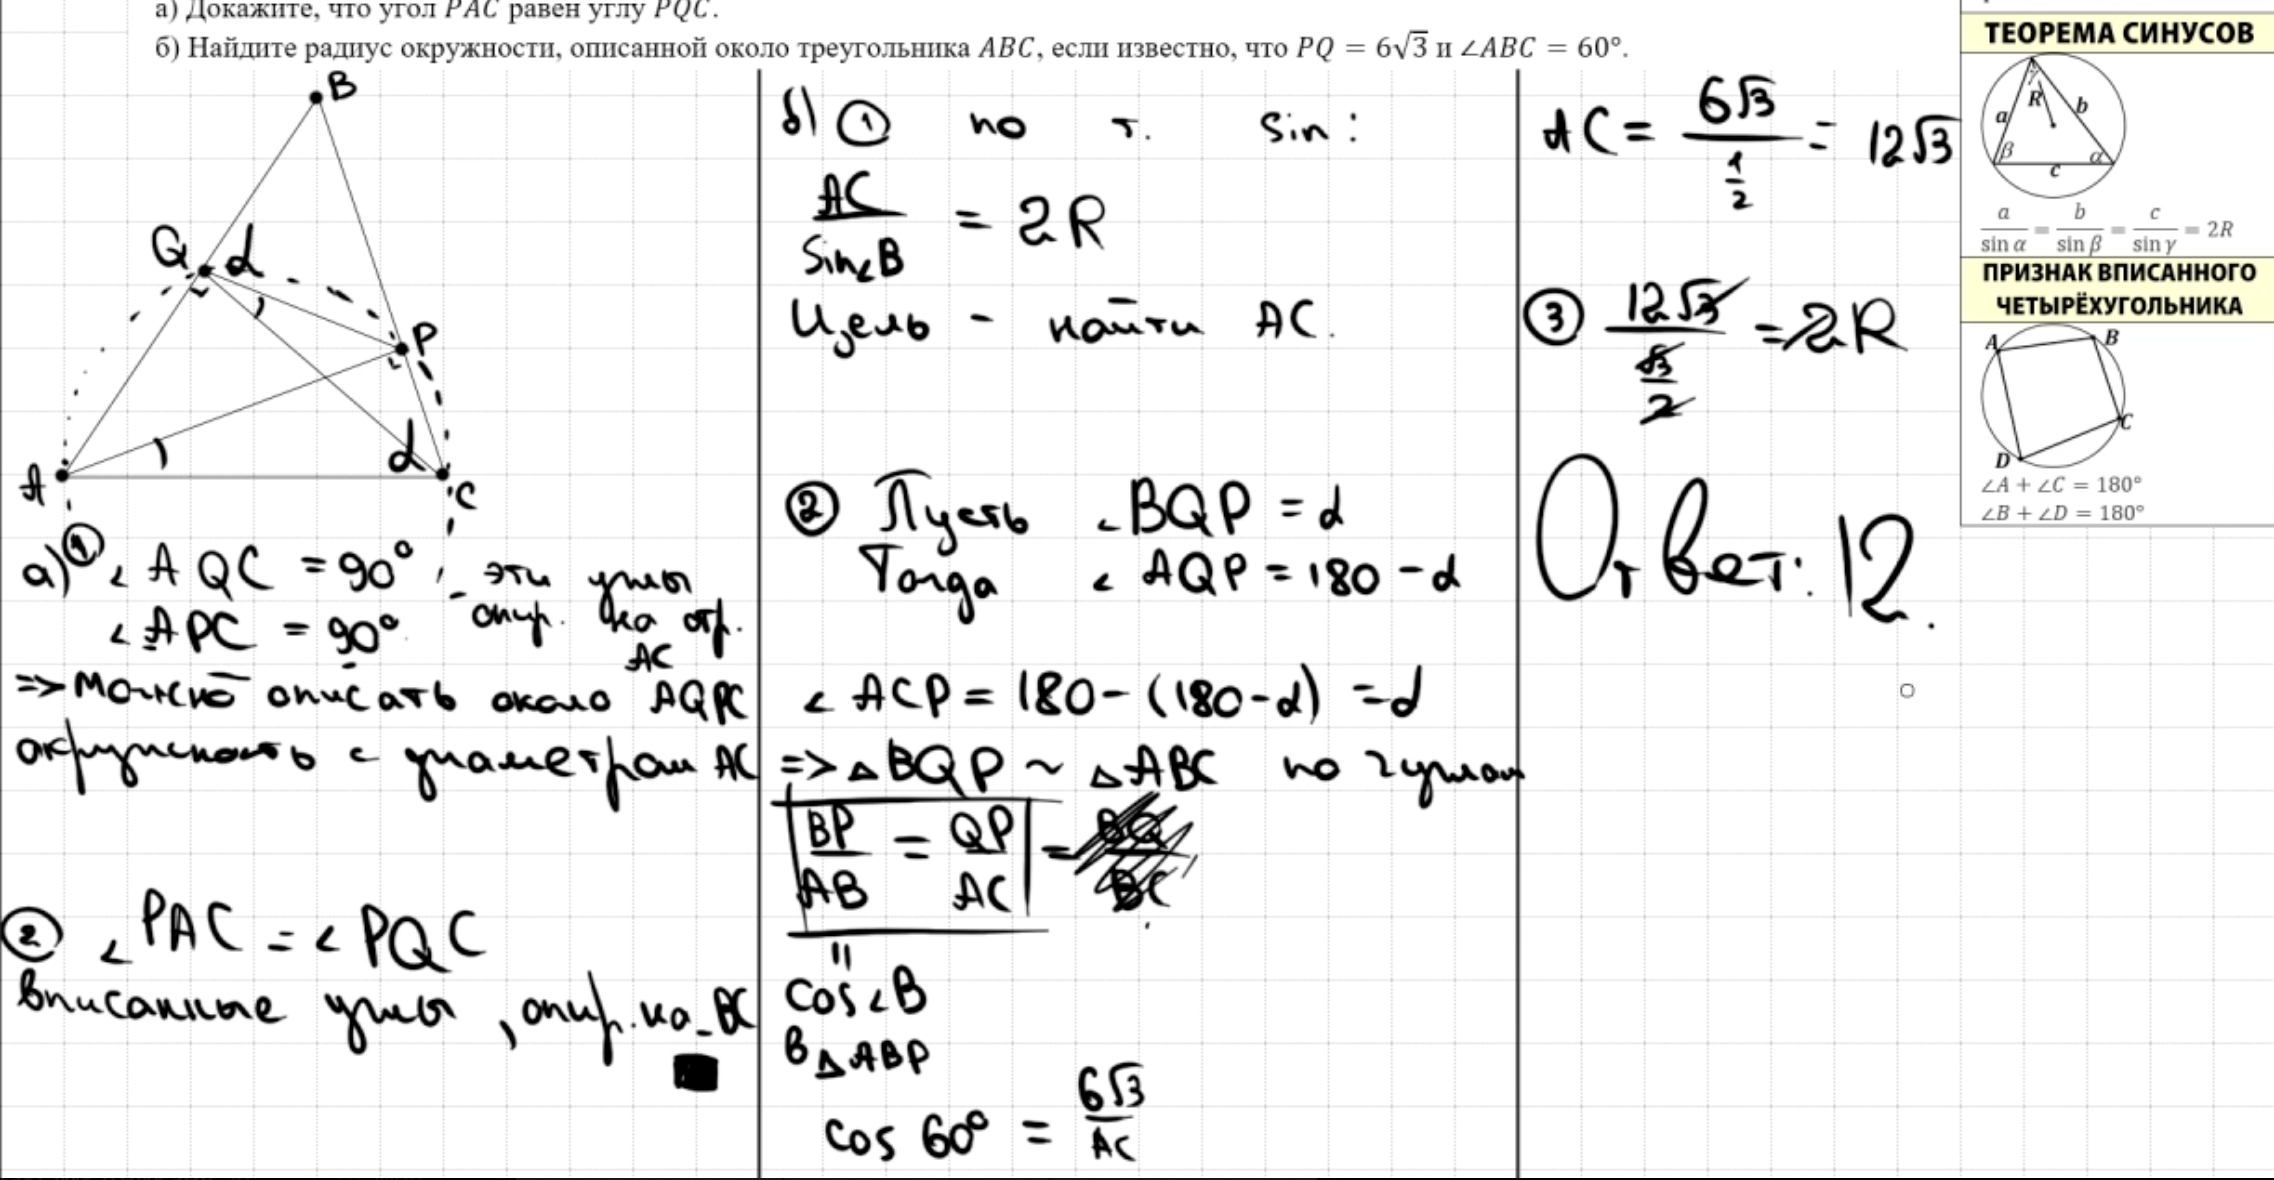 а) Докажите, что угол PAC равен углу PQC.
б) Найдите радиус окружности, описанной около треугольника ABC, если известно, что PQ = 6√3 и ∠ABC = 60°.
B
Q α
P
A α C
а) ① ∠AQC = 90°, - эти углы
∠APC = 90° опир. на отр. AC
=> Можно описать около AQPC
окружность с диаметром AC
② ∠PAC = ∠PQC
вписанные углы, опир. на PC
б) ① по т. sin:
AC / sin∠B = 2R
Цель - найти AC.
② Пусть ∠BQP = α
Тогда ∠AQP = 180 - α
∠ACP = 180 - (180 - α) = α
=> △BQP ~ △ABC по 2 углам
BP/AB = QP/AC = BQ/BC
||
cos∠B
в △ABP
cos 60° = 6√3 / AC
AC = 6√3 / (1/2) = 12√3
③ 12√3 / (√3/2) = 2R
Ответ: 12.
ТЕОРЕМА СИНУСОВ
γ
R
a b
β α
c
a/sin α = b/sin β = c/sin γ = 2R
ПРИЗНАК ВПИСАННОГО
ЧЕТЫРЁХУГОЛЬНИКА
A B
C
D
∠A + ∠C = 180°
∠B + ∠D = 180°